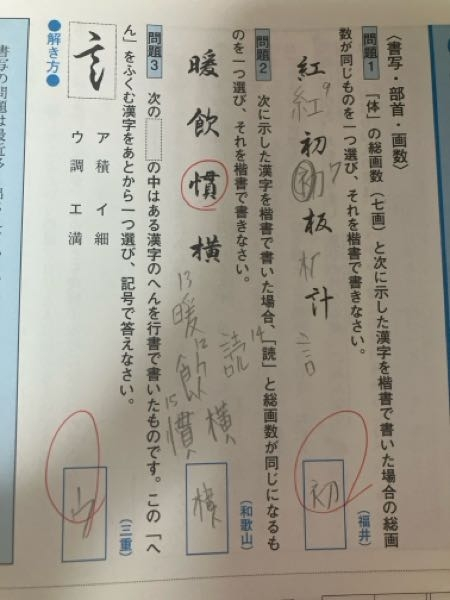 〈書写・部首・画数〉
問題1 「体」の総画数(七画)と次に示した漢字を楷書で書いた場合の総画
数が同じものを一つ選び、それを楷書で書きなさい。
(福井)
紅 初 板 計
紅 9 初 7 板 言
初
問題2 次に示した漢字を楷書で書いた場合、「読」と総画数が同じになるも
のを一つ選び、それを楷書で書きなさい。
(和歌山)
暖 飲 慣 横
読 14
13 暖 12 飲 横
15 慣
横
問題3 次の の中はある漢字のへんを行書で書いたものです。この「へ
ん」をふくむ漢字をあとから一つ選び、記号で答えなさい。
(三重)
ア 積 イ 細
ウ 調 エ 満
ウ
●解き方●
書写の問題は最近多